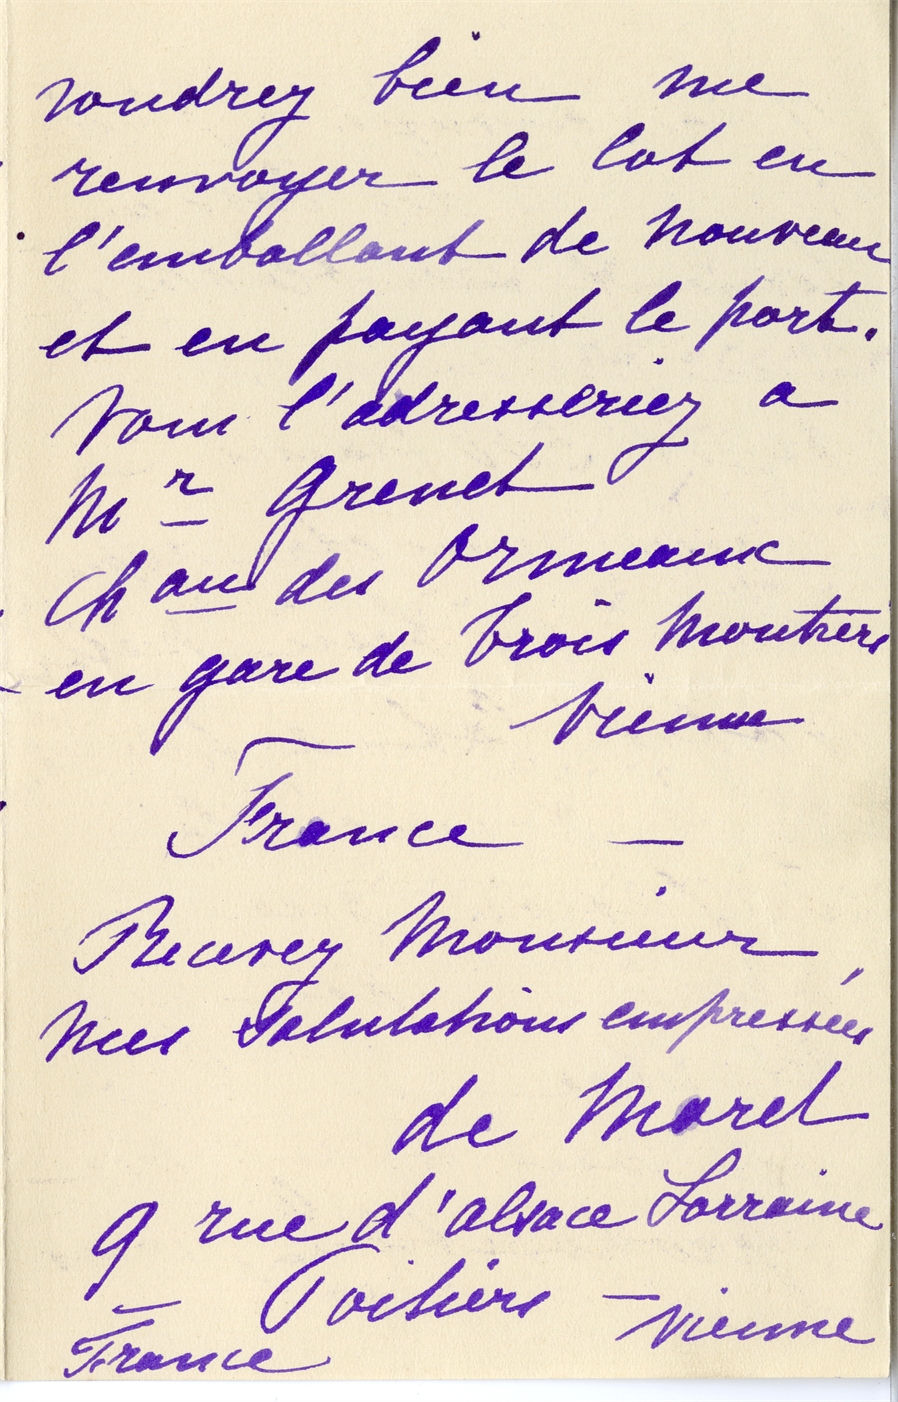 voudrez bien me
renvoyer le lot en
l'emballant de nouveau
et en payant le port.
Vous l'adresseriez a
Mr Grenet
Chau des Ormeaux
en gare de trois Moutiers
Vienne
France —
Recevez Monsieur
mes salutations empressées
de Morel
9 rue d'alsace Lorraine
Poitiers — Vienne
France